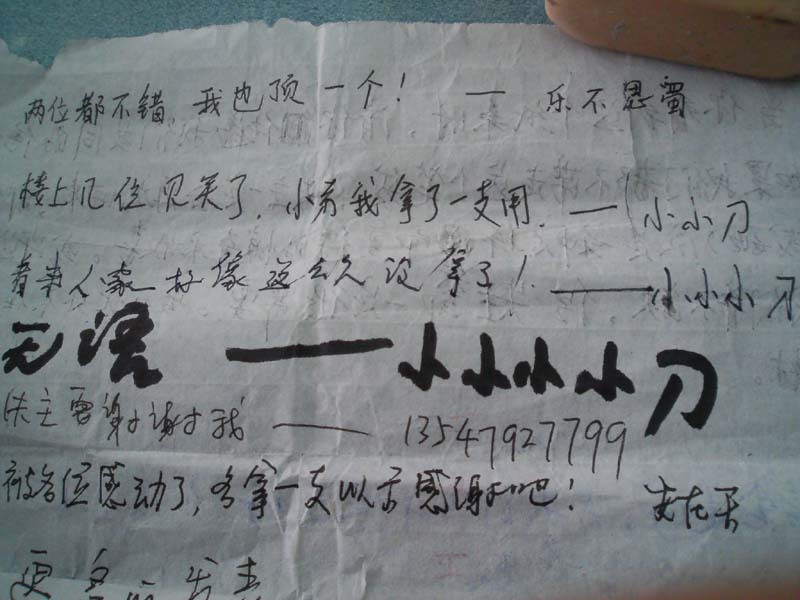 两位都不错,我也顶一个! — 乐不思蜀
楼上几位见笑了,小弟我拿了一支用. — 小小刀
看来人家好像这么久没拿了! ——小小小刀
无语 ——小小小小刀
失主要谢谢我 —— 13547927799
被各位感动了,各拿一支以示感谢吧!
更多